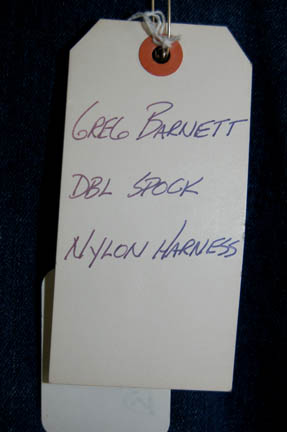 GREG BARNETT
DBL SPOCK
NYLON HARNESS